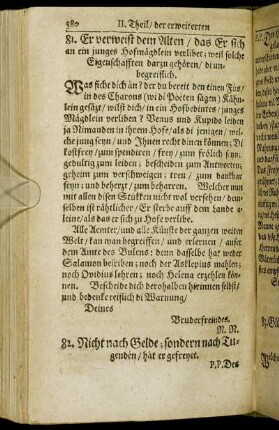 580 II. Theil/ der erweiterten
81. Er verweist dem Alten / das Er sich
an ein junges Hofmägdlein verlibet; weil solche
Eigenschafften darzu gehören/ di un-
begreiflich.
Was fichtet dich an? der du bereit den einen Fus/
in des Charons (wi di Poeten sagen) Kähn-
lein gesäzt/ wilst dich/ in ein Hofbedintes junges
Mägdlein verliben? Venus und Kupido leiden
ja Nimanden in ihrem Hofe/ als di jenigen/ wel-
che jung seyn / und Ihnen recht dinen können; Di
kostfrey / zum spendiren / frey / zum frölich seyn;
gedultig zum leiden; bescheiden zum Antworten;
geheim zum verschweigen; treu / zum dankbar
seyn; und beherzt/ zum beharren. Welcher nun
mit allen disen Stükken nicht wol versehen/ dem-
selben ist rähtlicher/ Er sterbe auff dem Lande
eine/ als das er sich zu Hofe verlibe.
Alle Aemter/und alle Künste der ganzen weiten
Welt/ kan man begreiffen / und erlernen / ausser
dem Amte des Bulens: denn dasselbe hat weder
Salamon beschriben; noch der Asklepius mahlen;
noch Ovidius lehren; noch Helena erzehlen kön-
nen. Bescheide dich derohalben hirinnen selbst/
und bedenke reiflich di Warnung/
Deines
Bruderfreindes.
N. N.
82. Nicht nach Gelde; sondern nach Tu-
genden/ hat er gefreyet.
P.P. Des